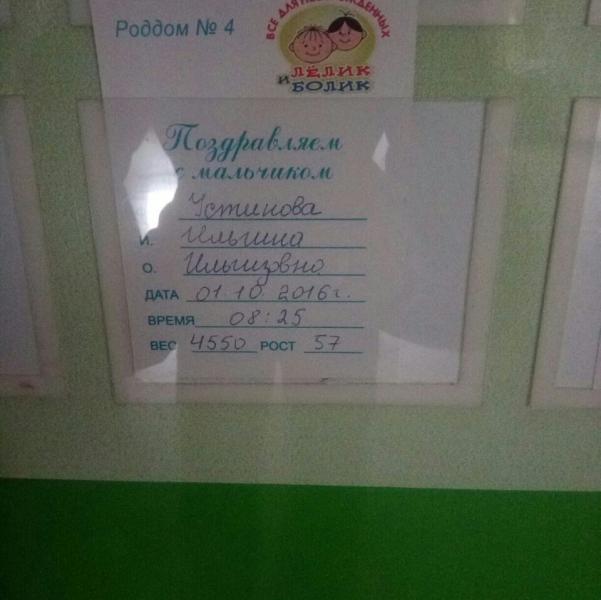 Роддом № 4
ВСЕ ДЛЯ НОВОРОЖДЕННЫХ
ЛЁЛИК
И БОЛИК
Поздравляем
с мальчиком
Устинова
И. Ильгина
О. Ильгизовна
ДАТА 01.10.2016г.
ВРЕМЯ 08:25
ВЕС 4550 РОСТ 57